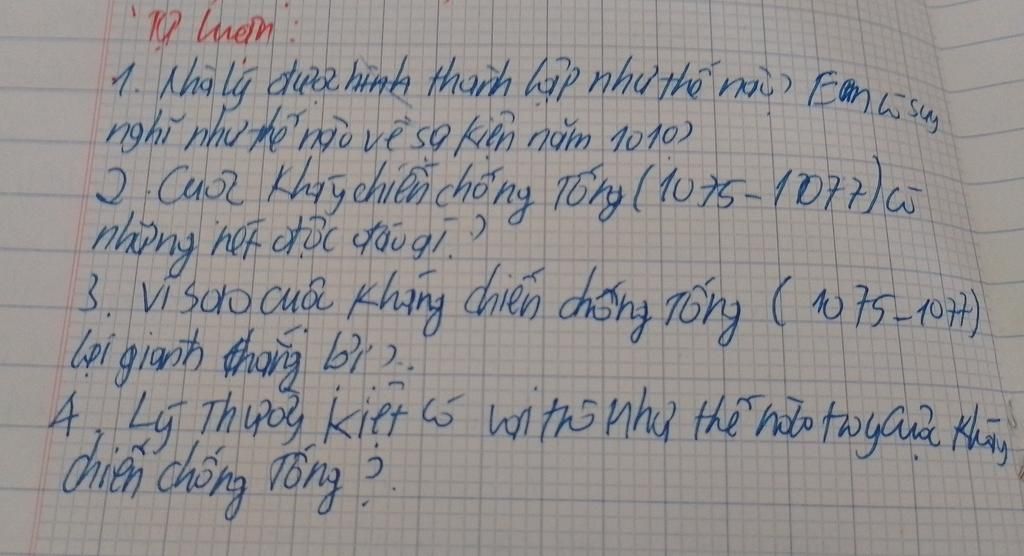 Tự luận:
1. Nhà Lý được hình thành lập như thế nào? Em có suy
nghĩ như thế nào về sự kiện năm 1010?
2. Cuộc kháng chiến chống Tống (1075-1077) có
những nét độc đáo gì?
3. Vì sao cuộc kháng chiến chống Tống (1075-1077)
lại giành thắng lợi?..
4. Lý Thường Kiệt có vai trò như thế nào cuộc kháng
chiến chống Tống?.